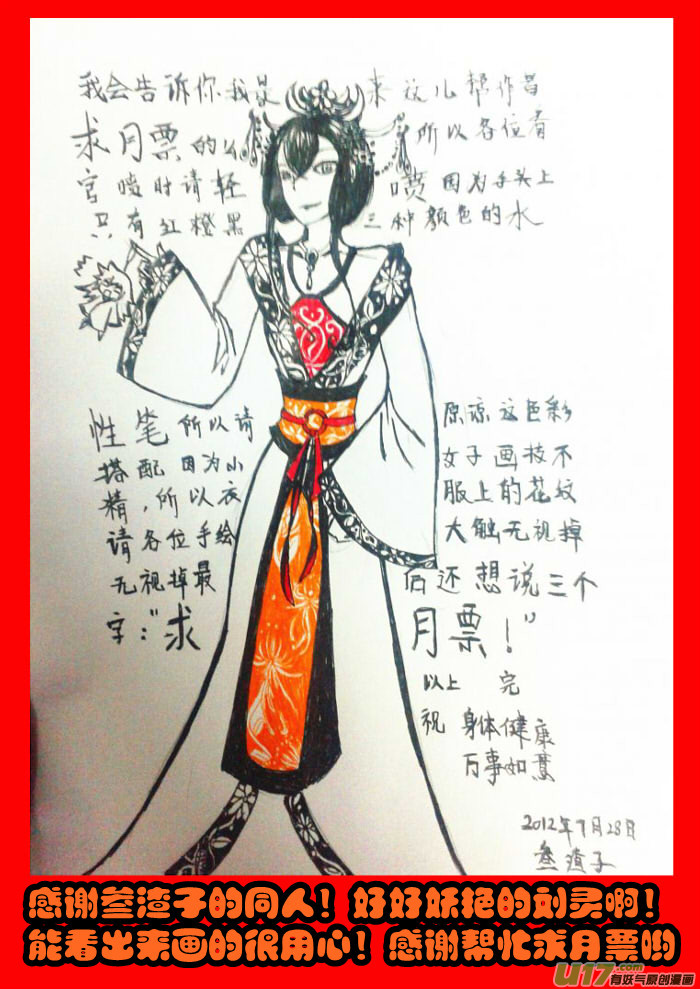 我会告诉你我是来这儿帮作者
求月票的么所以各位看
官喷时请轻喷因为手头上
只有红橙黑三种颜色的水
性笔所以请原谅这色彩
搭配因为小女子画技不
精,所以衣服上的花纹
请各位手绘大触无视掉
无视掉最后还想说三个
字:"求月票!"
以上 完
祝 身体健康
万事如意
2012年7月28日
叁渣子
感谢叁渣子的同人!好好妖艳的刘灵啊!
能看出来画的很用心!感谢帮忙求月票哟
U17.com
有妖气原创漫画